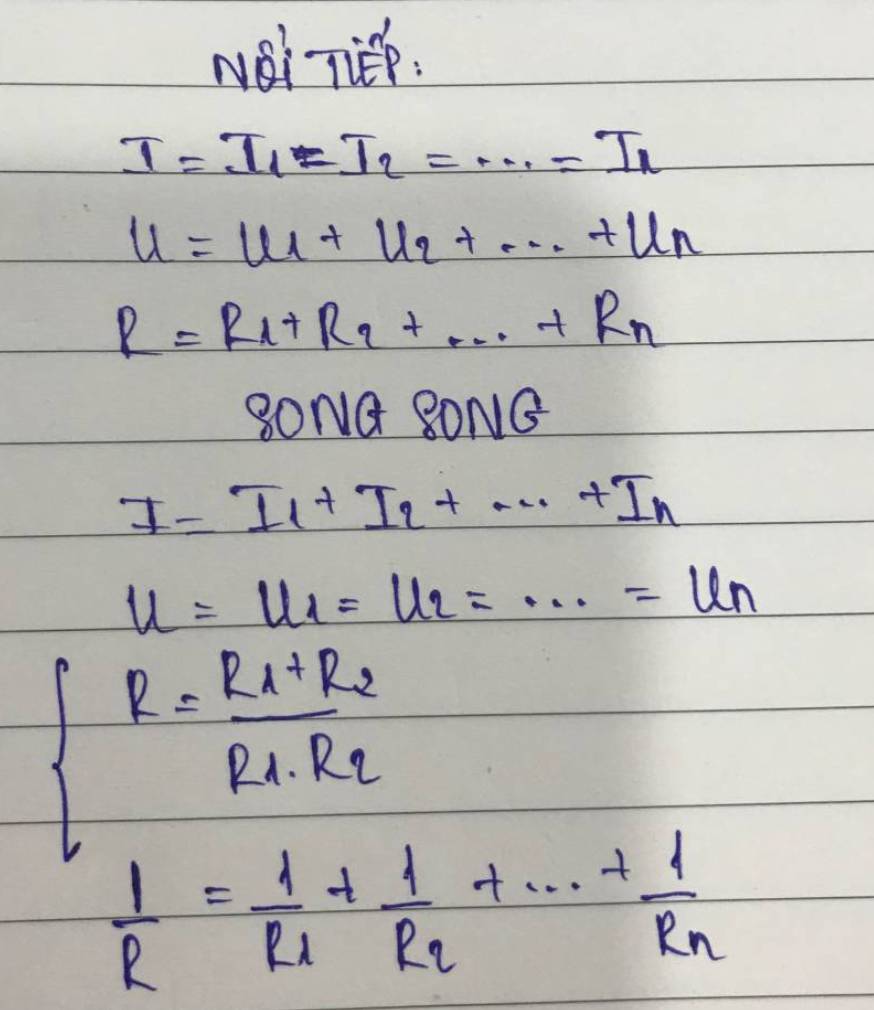 NỐI TIẾP:
I = I1 = I2 = ... = In
U = U1 + U2 + ... + Un
R = R1 + R2 + ... + Rn
SONG SONG
I = I1 + I2 + ... + In
U = U1 = U2 = ... = Un
R = R1+R2 / R1.R2
1/R = 1/R1 + 1/R2 + ... + 1/Rn